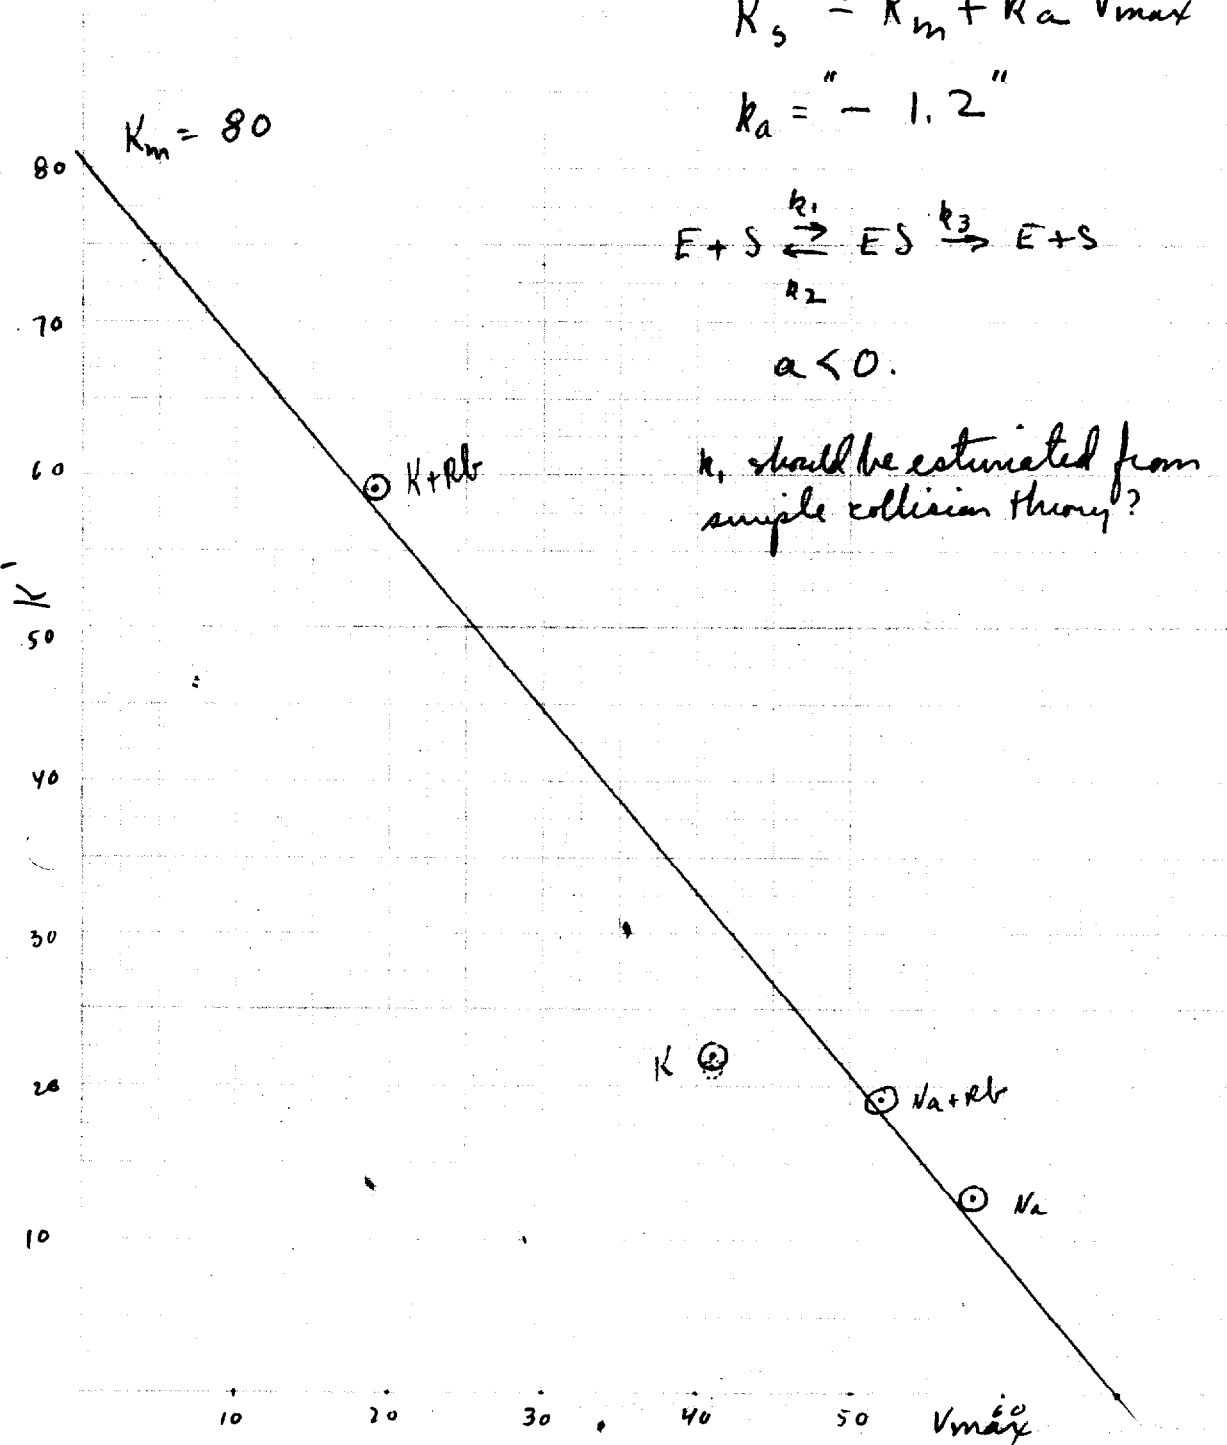 Ks = Km + ka Vmax
ka = "- 1.2"
Km = 80
E + S k1 ⇌ k2 ES k3 → E + S
a < 0.
k1 should be estimated from
simple collision theory?
K'
80
70
60
50
40
30
20
10
K+Rb
K
Na+Rb
Na
10 20 30 40 50 60
Vmax